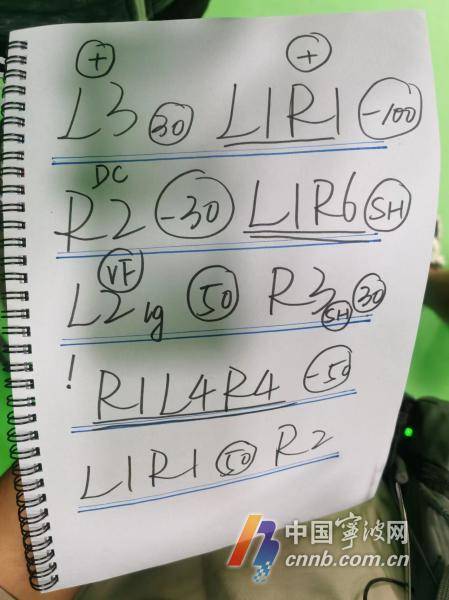 + +
L3 30 L1R1 -100
DC
R2 -30 L1R6 SH
VF
L2 lg 50 R3 SH 30
! R1L4R4 -50
L1R1 50 R2
中国宁波网
cnnb.com.cn